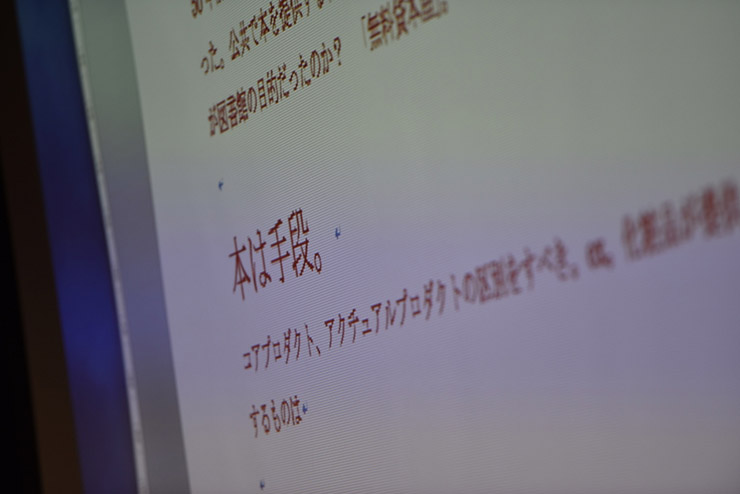 った。公共で本を提供する
が図書館の目的だったのか？ 「無料貸本屋」。
本は手段。
コアプロダクト、アクチュアルプロダクトの区別をすべき。ex. 化粧品が提供
するものは